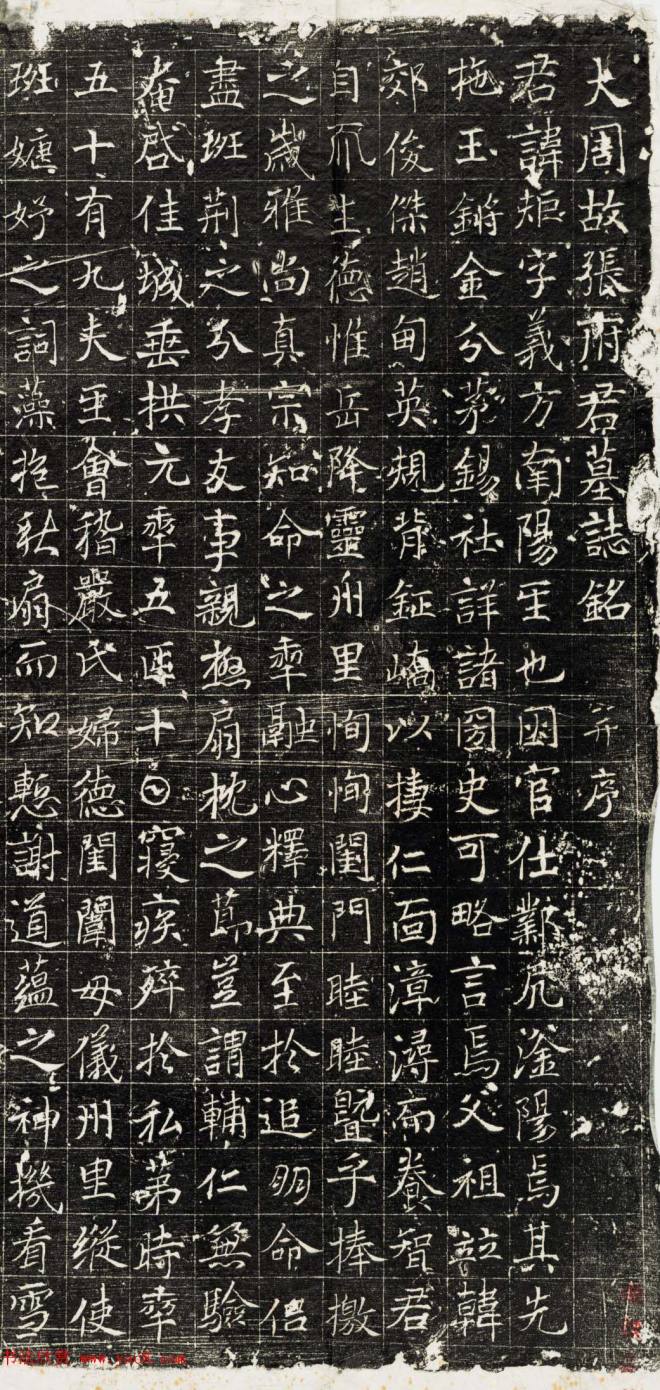 大周故張府君墓誌銘 并序
君諱矩字義方南陽𤯔也因官仕鄴凥滏陽焉其先
拖玉鏘金分茅錫社詳諸圀史可略言焉父祖竝韓
郊俊傑趙甸英䂓背鉦嶠以捿仁面漳潯而養智君
自𠀑生德惟岳降靈州里恂恂閨門睦睦暨乎捧檄
之歲雅尚真宗知命之𠡦融心釋典至於追朋命侣
盡班荊之分孝友事親極扇枕之莭豈謂輔仁無驗
奄啓佳城垂拱元𠡦五𠥱十𡆠寢疾於私第時𠡦
五十有九夫𤯔會稽嚴氏婦德閨闈母儀州里縱使
班婕妤之詞藻抱秋扇而知慙謝道蕴之神機看雪
书法欣赏 www.yac8.com